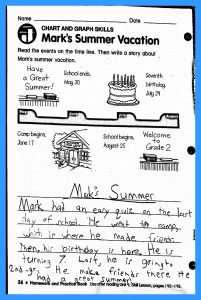 Name Date
CHART AND GRAPH SKILLS
Mark's Summer Vacation
Read the events on the time line. Then write a story about
Mark's summer vacation.
Have
a Great
Summer!
School ends.
May 30
Seventh
birthday.
July 29
Camp begins.
June 17
School begins.
August 25
Welcome
to
Grade 2
Mark's Summer
Mark had an easy quiz on the last
day of school. He went to camp,
which is where he made friends.
Then, his birthday is here. He is
turning 7. Last, he is going to
2nd gr. He make friends there. He
had a great summer.
36 Homework and Practice Book Use after reading Unit 4, Skill Lesson, pages 192-193.